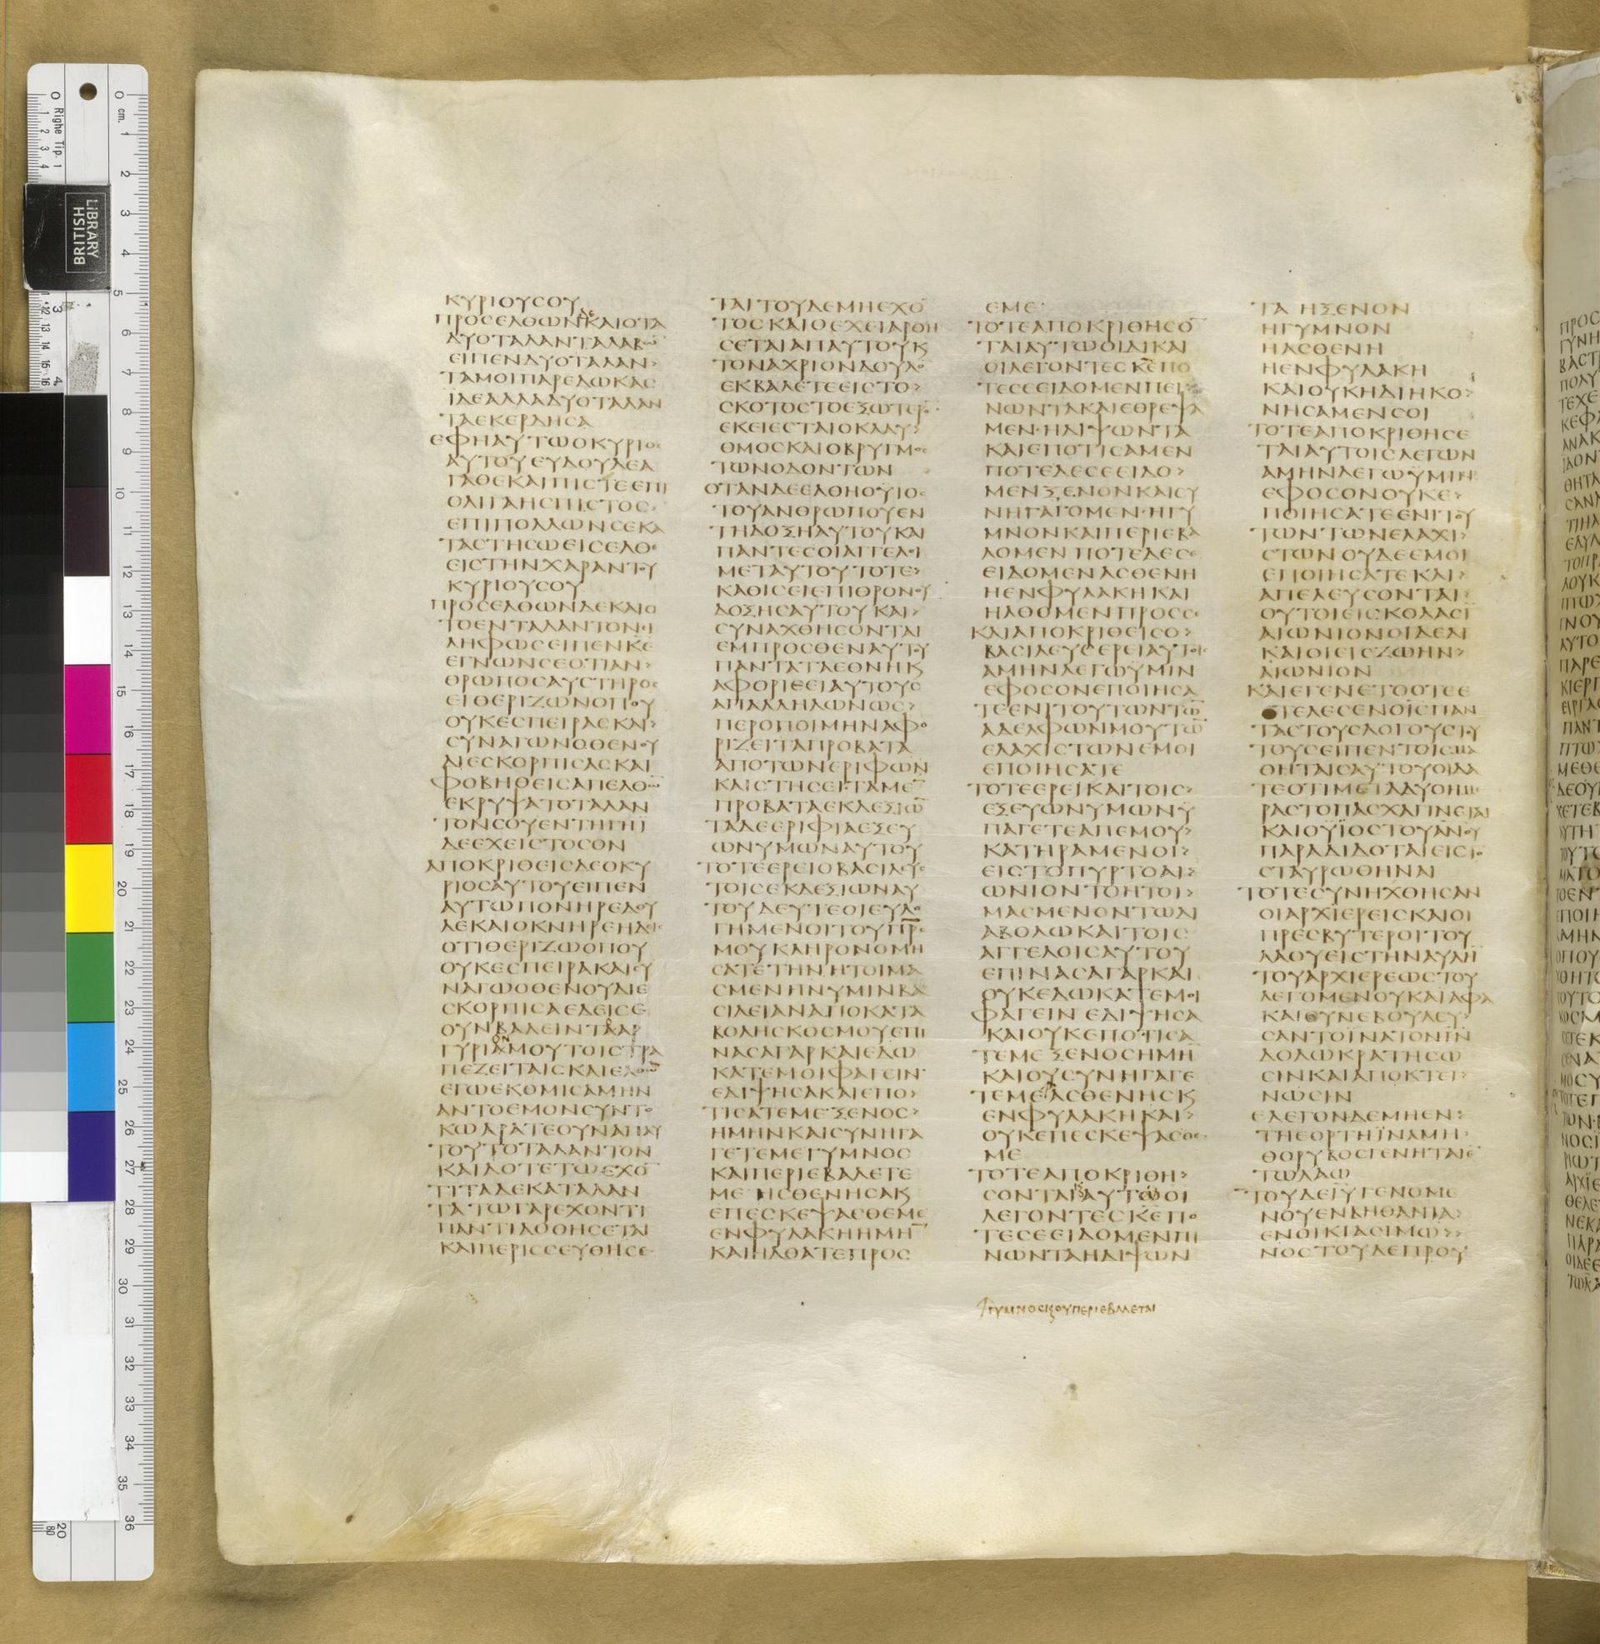 ΚΥΡΙΟΥϹΟΥ
ΠΡΟϹΕΛΘΩΝΔΕΚΑΙΟΤΑ
ΔΥΟΤΑΛΑΝΤΑΛΑΒΩ
ΕΙΠΕΝΔΥΟΤΑΛΑΝ>
ΤΑΜΟΙΠΑΡΕΔΩΚΑϹ
ΙΔΕΑΛΛΑΔΥΟΤΑΛΑΝ
ΤΑΕΚΕΡΔΗϹΑ
ΕΦΗΑΥΤΩΟΚΥΡΙΟϹ
ΑΥΤΟΥΕΥΔΟΥΛΕΑ
ΓΑΘΕΚΑΙΠΙϹΤΕΕΠΙ
ΟΛΙΓΑΗϹΠΙϹΤΟϹ>
ΕΠΙΠΟΛΛΩΝϹΕΚΑ
ΤΑϹΤΗϹΩΕΙϹΕΛΘΕ
ΕΙϹΤΗΝΧΑΡΑΝΤΟΥ
ΚΥΡΙΟΥϹΟΥ
ΠΡΟϹΕΛΘΩΝΔΕΚΑΙΟ
ΤΟΕΝΤΑΛΑΝΤΟΝΕΙ
ΛΗΦΩϹΕΙΠΕΝΚΕ
ΕΓΝΩΝϹΕΟΤΙΑΝ>
ΘΡΩΠΟϹΑΥϹΤΗΡΟϹ
ΕΙΘΕΡΙΖΩΝΟΠΟΥ
ΟΥΚΕϹΠΕΙΡΑϹΚΑΙ>
ϹΥΝΑΓΩΝΟΘΕΝΟΥ
ΔΙΕϹΚΟΡΠΙϹΑϹΚΑΙ
ΦΟΒΗΘΕΙϹΑΠΕΛΘΩ
ΕΚΡΥΨΑΤΟΤΑΛΑΝ
ΤΟΝϹΟΥΕΝΤΗΓΗΙ
ΔΕΕΧΕΙϹΤΟϹΟΝ
ΑΠΟΚΡΙΘΕΙϹΔΕΟΚΥ
ΡΙΟϹΑΥΤΟΥΕΙΠΕΝ
ΑΥΤΩΠΟΝΗΡΕΔΟΥ
ΛΕΚΑΙΟΚΝΗΡΕΗΔΙϹ
ΟΤΙΘΕΡΙΖΩΟΠΟΥ
ΟΥΚΕϹΠΕΙΡΑΚΑΙϹΥ
ΝΑΓΩΟΘΕΝΟΥΔΙΕ
ϹΚΟΡΠΙϹΑΕΔΕΙϹΕ
ΟΥΝΒΑΛΕΙΝΤΑΑΡ
ΓΥΡΙΑΜΟΥΤΟΙϹΤΡΑ
ΠΕΖΕΙΤΑΙϹΚΑΙΕΛΘΩ
ΕΓΩΕΚΟΜΙϹΑΜΗΝ
ΑΝΤΟΕΜΟΝϹΥΝΤΟ
ΚΩΑΡΑΤΕΟΥΝΑΠΑΥ
ΤΟΥΤΟΤΑΛΑΝΤΟΝ
ΚΑΙΔΟΤΕΤΩΕΧΟ
ΤΙΤΑΔΕΚΑΤΑΛΑΝ
ΤΑΤΩΓΑΡΕΧΟΝΤΙ
ΠΑΝΤΙΔΟΘΗϹΕΤΑΙ
ΚΑΙΠΕΡΙϹϹΕΥΘΗϹΕ
ΤΑΙΤΟΥΔΕΜΗΕΧΟ
ΤΟϹΚΑΙΟΕΧΕΙΑΡΘΗ
ϹΕΤΑΙΑΠΑΥΤΟΥΚ
ΤΟΝΑΧΡΙΟΝΔΟΥΛΟ
ΕΚΒΑΛΕΤΕΕΙϹΤΟ>
ϹΚΟΤΟϹΤΟΕΞΩΤΕΡΟ
ΕΚΕΙΕϹΤΑΙΟΚΛΑΥ>
ΘΜΟϹΚΑΙΟΒΡΥΓΜΟϹ
ΤΩΝΟΔΟΝΤΩΝ
ΟΤΑΝΔΕΕΛΘΗΟΥΙΟϹ
ΤΟΥΑΝΘΡΩΠΟΥΕΝ
ΤΗΔΟΞΗΑΥΤΟΥΚΑΙ
ΠΑΝΤΕϹΟΙΑΓΓΕΛΟΙ
ΜΕΤΑΥΤΟΥΤΟΤΕ>
ΚΑΘΙϹΕΙΕΠΙΘΡΟΝΟΥ
ΔΟΞΗϹΑΥΤΟΥΚΑΙ>
ϹΥΝΑΧΘΗϹΟΝΤΑΙ
ΕΜΠΡΟϹΘΕΝΑΥΤΟΥ
ΠΑΝΤΑΤΑΕΘΝΗΚ
ΑΦΟΡΙϹΕΙΑΥΤΟΥϹ
ΑΠΑΛΛΗΛΩΝΩϹ>
ΠΕΡΟΠΟΙΜΗΝΑΦΟ
ΡΙΖΕΙΤΑΠΡΟΒΑΤΑ
ΑΠΟΤΩΝΕΡΙΦΩΝ
ΚΑΙϹΤΗϹΕΙΤΑΜΕ
ΠΡΟΒΑΤΑΕΚΔΕΞΙΩ
ΤΑΔΕΕΡΙΦΙΑΕΞΕΥ
ΩΝΥΜΩΝΑΥΤΟΥ
ΤΟΤΕΕΡΕΙΟΒΑϹΙΛΕΥϹ
ΤΟΙϹΕΚΔΕΞΙΩΝΑΥ
ΤΟΥΔΕΥΤΕΟΙΕΥΛΟ
ΓΗΜΕΝΟΙΤΟΥΠΡϹ
ΜΟΥΚΛΗΡΟΝΟΜΗ
ϹΑΤΕΤΗΝΗΤΟΙΜΑ
ϹΜΕΝΗΝΥΜΙΝΒΑ
ϹΙΛΕΙΑΝΑΠΟΚΑΤΑ
ΒΟΛΗϹΚΟϹΜΟΥΕΠΙ
ΝΑϹΑΓΑΡΚΑΙΕΔΩ
ΚΑΤΕΜΟΙΦΑΓΕΙΝ
ΕΔΙΨΗϹΑΚΑΙΕΠΟ>
ΤΙϹΑΤΕΜΕΞΕΝΟϹ>
ΗΜΗΝΚΑΙϹΥΝΗΓΑ
ΓΕΤΕΜΕΓΥΜΝΟϹ
ΚΑΙΠΕΡΙΕΒΑΛΕΤΕ
ΜΕΗϹΘΕΝΗϹΑΚ
ΕΠΕϹΚΕΨΑϹΘΕΜΕ
ΕΝΦΥΛΑΚΗΗΜΗ
ΚΑΙΗΛΘΑΤΕΠΡΟϹ
ΕΜΕ
ΤΟΤΕΑΠΟΚΡΙΘΗϹΟ
ΤΑΙΑΥΤΩΟΙΔΙΚΑΙ
ΟΙΛΕΓΟΝΤΕϹΚΕΠΟ
ΤΕϹΕΕΙΔΟΜΕΝΠΕΙ>
ΝΩΝΤΑΚΑΙΕΘΡΕΨΑ
ΜΕΝΗΔΙΨΩΝΤΑ
ΚΑΙΕΠΟΤΙϹΑΜΕΝ
ΠΟΤΕΔΕϹΕΕΙΔΟ>
ΜΕΝΞΕΝΟΝΚΑΙϹΥ
ΝΗΓΑΓΟΜΕΝΗΓΥ
ΜΝΟΝΚΑΙΠΕΡΙΕΒΑ
ΛΟΜΕΝΠΟΤΕΔΕϹΕ
ΕΙΔΟΜΕΝΑϹΘΕΝΗ
ΗΕΝΦΥΛΑΚΗΚΑΙ
ΗΛΘΟΜΕΝΠΡΟϹϹΕ
ΚΑΙΑΠΟΚΡΙΘΕΙϹΟ>
ΒΑϹΙΛΕΥϹΕΡΕΙΑΥΤΟΙϹ
ΑΜΗΝΛΕΓΩΥΜΙΝ
ΕΦΟϹΟΝΕΠΟΙΗϹΑ
ΤΕΕΝΙΤΟΥΤΩΝΤΩ
ΑΔΕΛΦΩΝΜΟΥΤΩ
ΕΛΑΧΙϹΤΩΝΕΜΟΙ
ΕΠΟΙΗϹΑΤΕ
ΤΟΤΕΕΡΕΙΚΑΙΤΟΙϹ>
ΕΞΕΥΩΝΥΜΩΝΥ
ΠΑΓΕΤΕΑΠΕΜΟΥ>
ΚΑΤΗΡΑΜΕΝΟΙ>
ΕΙϹΤΟΠΥΡΤΟΑΙ>
ΩΝΙΟΝΤΟΗΤΟΙ>
ΜΑϹΜΕΝΟΝΤΩΔΙ
ΑΒΟΛΩΚΑΙΤΟΙϹ
ΑΓΓΕΛΟΙϹΑΥΤΟΥ
ΕΠΙΝΑϹΑΓΑΡΚΑΙ
ΟΥΚΕΔΩΚΑΤΕΜΟΙ
ΦΑΓΕΙΝΕΔΙΨΗϹΑ
ΚΑΙΟΥΚΕΠΟΤΙϹΑ
ΤΕΜΕΞΕΝΟϹΗΜΗ
ΚΑΙΟΥϹΥΝΗΓΑΓΕ
ΤΕΜΕΑϹΘΕΝΗϹΚ
ΕΝΦΥΛΑΚΗΚΑΙ>
ΟΥΚΕΠΕϹΚΕΨΑϹΘΕ
ΜΕ
ΤΟΤΕΑΠΟΚΡΙΘΗ>
ϹΟΝΤΑΙΑΥΤΩΟΙ
ΛΕΓΟΝΤΕϹΚΕΠΟ
ΤΕϹΕΕΙΔΟΜΕΝΠΙ
ΝΩΝΤΑΗΔΙΨΩΝ
ΓΥΜΝΟϹΚΟΥΠΕΡΙΕΒΑΛΕΤΑΙ
ΤΑΗΞΕΝΟΝ
ΗΓΥΜΝΟΝ
ΗΑϹΘΕΝΗ
ΗΕΝΦΥΛΑΚΗ
ΚΑΙΟΥΚΗΔΙΗΚΟ>
ΝΗϹΑΜΕΝϹΟΙ
ΤΟΤΕΑΠΟΚΡΙΘΗϹΕ
ΤΑΙΑΥΤΟΙϹΛΕΓΩΝ
ΑΜΗΝΛΕΓΩΥΜΙΝ
ΕΦΟϹΟΝΟΥΚΕ>
ΠΟΙΗϹΑΤΕΕΝΙΤΟΥ
ΤΩΝΤΩΝΕΛΑΧΙ>
ϹΤΩΝΟΥΔΕΕΜΟΙ
ΕΠΟΙΗϹΑΤΕΚΑΙ>
ΑΠΕΛΕΥϹΟΝΤΑΙ>
ΟΥΤΟΙΕΙϹΚΟΛΑϹΙ
ΑΙΩΝΙΟΝΟΙΔΕΔΙ
ΚΑΙΟΙΕΙϹΖΩΗΝ>
ΑΙΩΝΙΟΝ
ΚΑΙΕΓΕΝΕΤΟΟΤΕΕ
ΤΕΛΕϹΕΝΟΙϹΠΑΝ
ΤΑϹΤΟΥϹΛΟΓΟΥϹΤΟΥ
ΤΟΥϹΕΙΠΕΝΤΟΙϹΜΑ
ΘΗΤΑΙϹΑΥΤΟΥΟΙΔΑ
ΤΕΟΤΙΜΕΤΑΔΥΟΗΜΕ
ΡΑϹΤΟΠΑϹΧΑΓΙΝΕΤΑΙ
ΚΑΙΟΥΪΟϹΤΟΥΑΝΟΥ
ΠΑΡΑΔΙΔΟΤΑΙΕΙϹΤΟ
ϹΤΑΥΡΩΘΗΝΑΙ
ΤΟΤΕϹΥΝΗΧΘΗϹΑΝ
ΟΙΑΡΧΙΕΡΕΙϹΚΑΙΟΙ
ΠΡΕϹΒΥΤΕΡΟΙΤΟΥ
ΛΑΟΥΕΙϹΤΗΝΑΥΛΗ
ΤΟΥΑΡΧΙΕΡΕΩϹΤΟΥ
ΛΕΓΟΜΕΝΟΥΚΑΙΑΦΑ
ΚΑΙϹΥΝΕΒΟΥΛΕΥ>
ϹΑΝΤΟΙΝΑΤΟΝΙΝ
ΔΟΛΩΚΡΑΤΗϹΩ
ϹΙΝΚΑΙΑΠΟΚΤΕΙ>
ΝΩϹΙΝ
ΕΛΕΓΟΝΔΕΜΗΕΝ>
ΤΗΕΟΡΤΗΪΝΑΜΗ>
ΘΟΡΥΒΟϹΓΕΝΗΤΑΙΕ
ΤΩΛΑΩ
ΤΟΥΔΕΙΥΓΕΝΟΜΕ
ΝΟΥΕΝΒΗΘΑΝΙΑ>
ΕΝΟΙΚΙΑϹΙΜΩ>
ΝΟϹΤΟΥΛΕΠΡΟΥ
BRITISH
LIBRARY